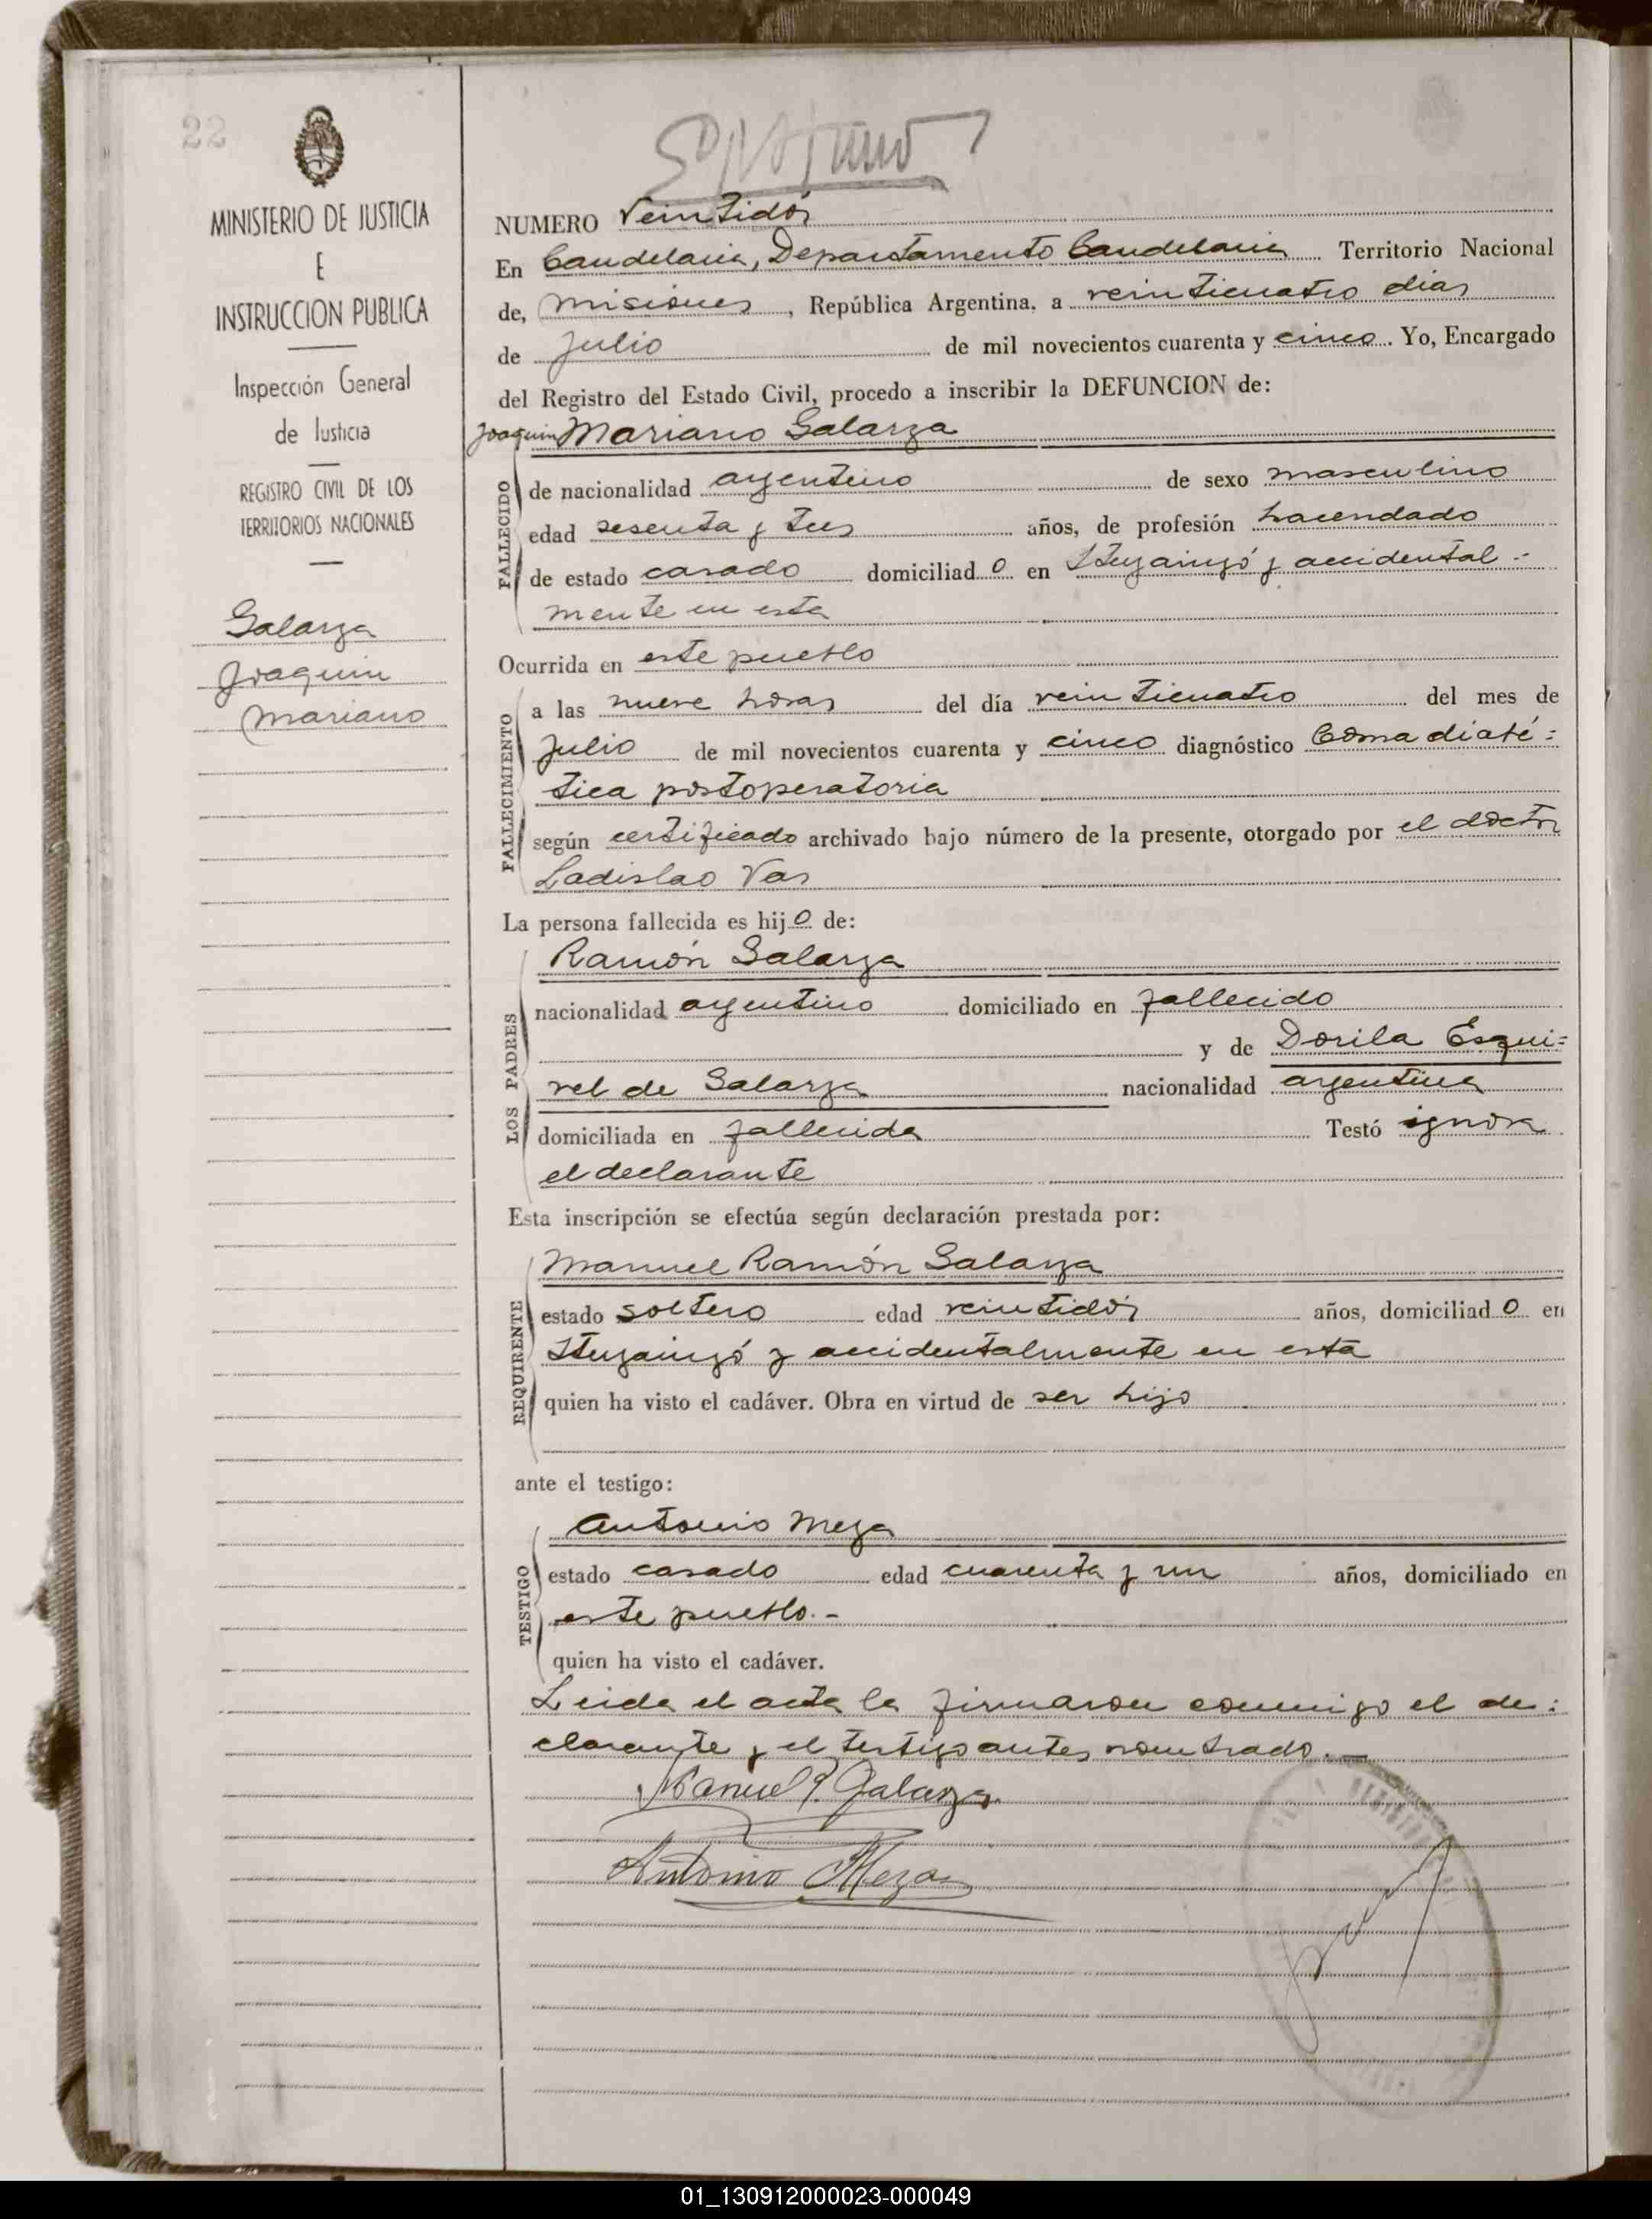 22
MINISTERIO DE JUSTICIA
E
INSTRUCCION PUBLICA
Inspección General
de Justicia
REGISTRO CIVIL DE LOS
TERRITORIOS NACIONALES
Galarza
Joaquin
Mariano
NUMERO Veintidós
En Candelaria, Departamento Candelaria Territorio Nacional
de, Misiones, República Argentina, a veinticuatro días
de Julio de mil novecientos cuarenta y cinco. Yo, Encargado
del Registro del Estado Civil, procedo a inscribir la DEFUNCION de:
Joaquin Mariano Galarza
FALLECIDO
de nacionalidad argentino de sexo masculino
edad sesenta y tres años, de profesión hacendado
de estado casado domiciliado en Ituzaingó y accidental-
mente en esta
Ocurrida en este pueblo
FALLECIMIENTO
a las nueve horas del día veinticuatro del mes de
Julio de mil novecientos cuarenta y cinco diagnóstico Coma diabé=
tica postoperatoria
según certificado archivado bajo número de la presente, otorgado por el doctor
Ladislao Vas
La persona fallecida es hijo de:
LOS PADRES
Ramón Galarza
nacionalidad argentino domiciliado en fallecido
y de Dorila Esqui=
vel de Galarza nacionalidad argentina
domiciliada en fallecida Testó ignora
el declarante
Esta inscripción se efectúa según declaración prestada por:
REQUIRENTE
Manuel Ramón Galarza
estado soltero edad veintidós años, domiciliado en
Ituzaingó y accidentalmente en esta
quien ha visto el cadáver. Obra en virtud de ser hijo
ante el testigo:
TESTIGO
Antonio Meza
estado casado edad cuarenta y un años, domiciliado en
este pueblo.-
quien ha visto el cadáver.
Leida el acta la firmaron conmigo el de=
clarante y el testigo antes nombrado.—
Manuel R. Galarza
Antonio Meza
01_130912000023-000049